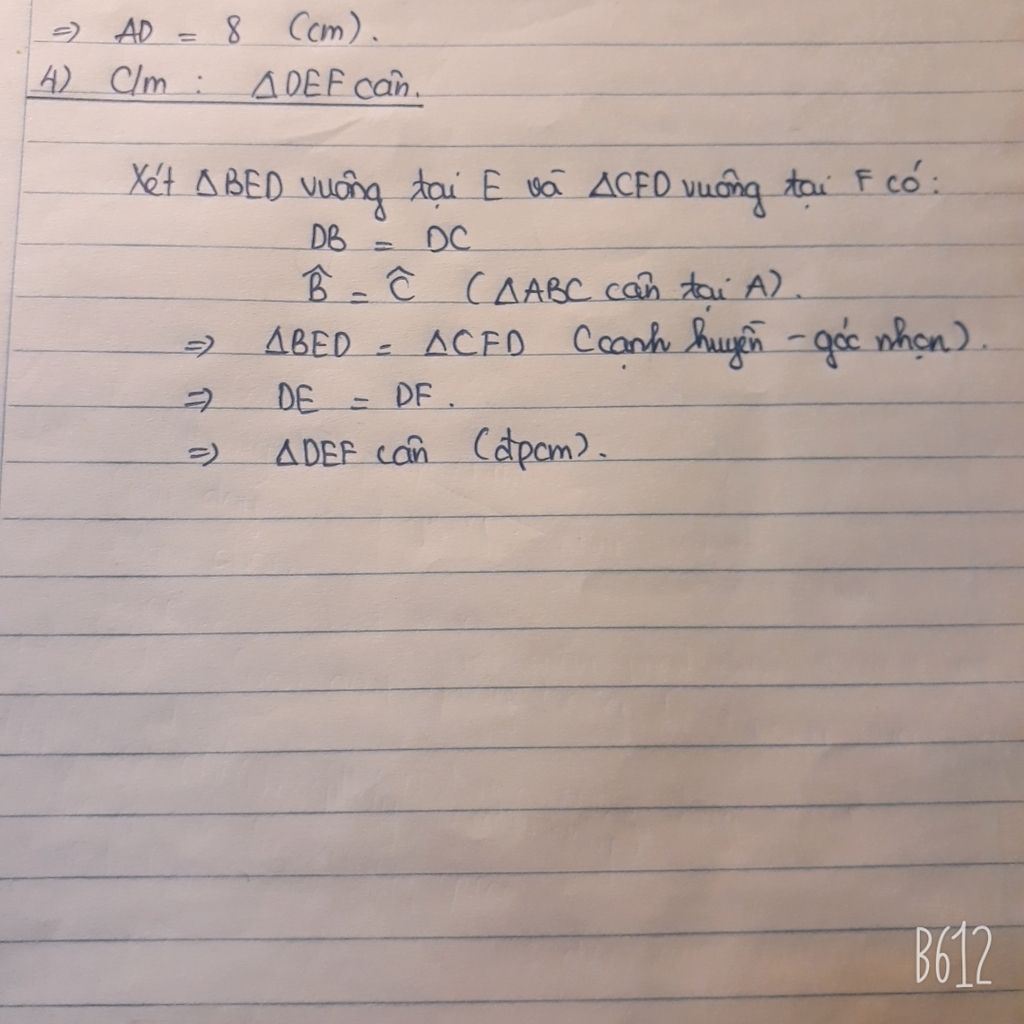 => AD = 8 (cm).
4) C/m : ΔDEF cân.
Xét ΔBED vuông tại E và ΔCFD vuông tại F có:
DB = DC
B̂ = Ĉ (ΔABC cân tại A).
=> ΔBED = ΔCFD (cạnh huyền - góc nhọn).
=> DE = DF.
=> ΔDEF cân (đpcm).
B612